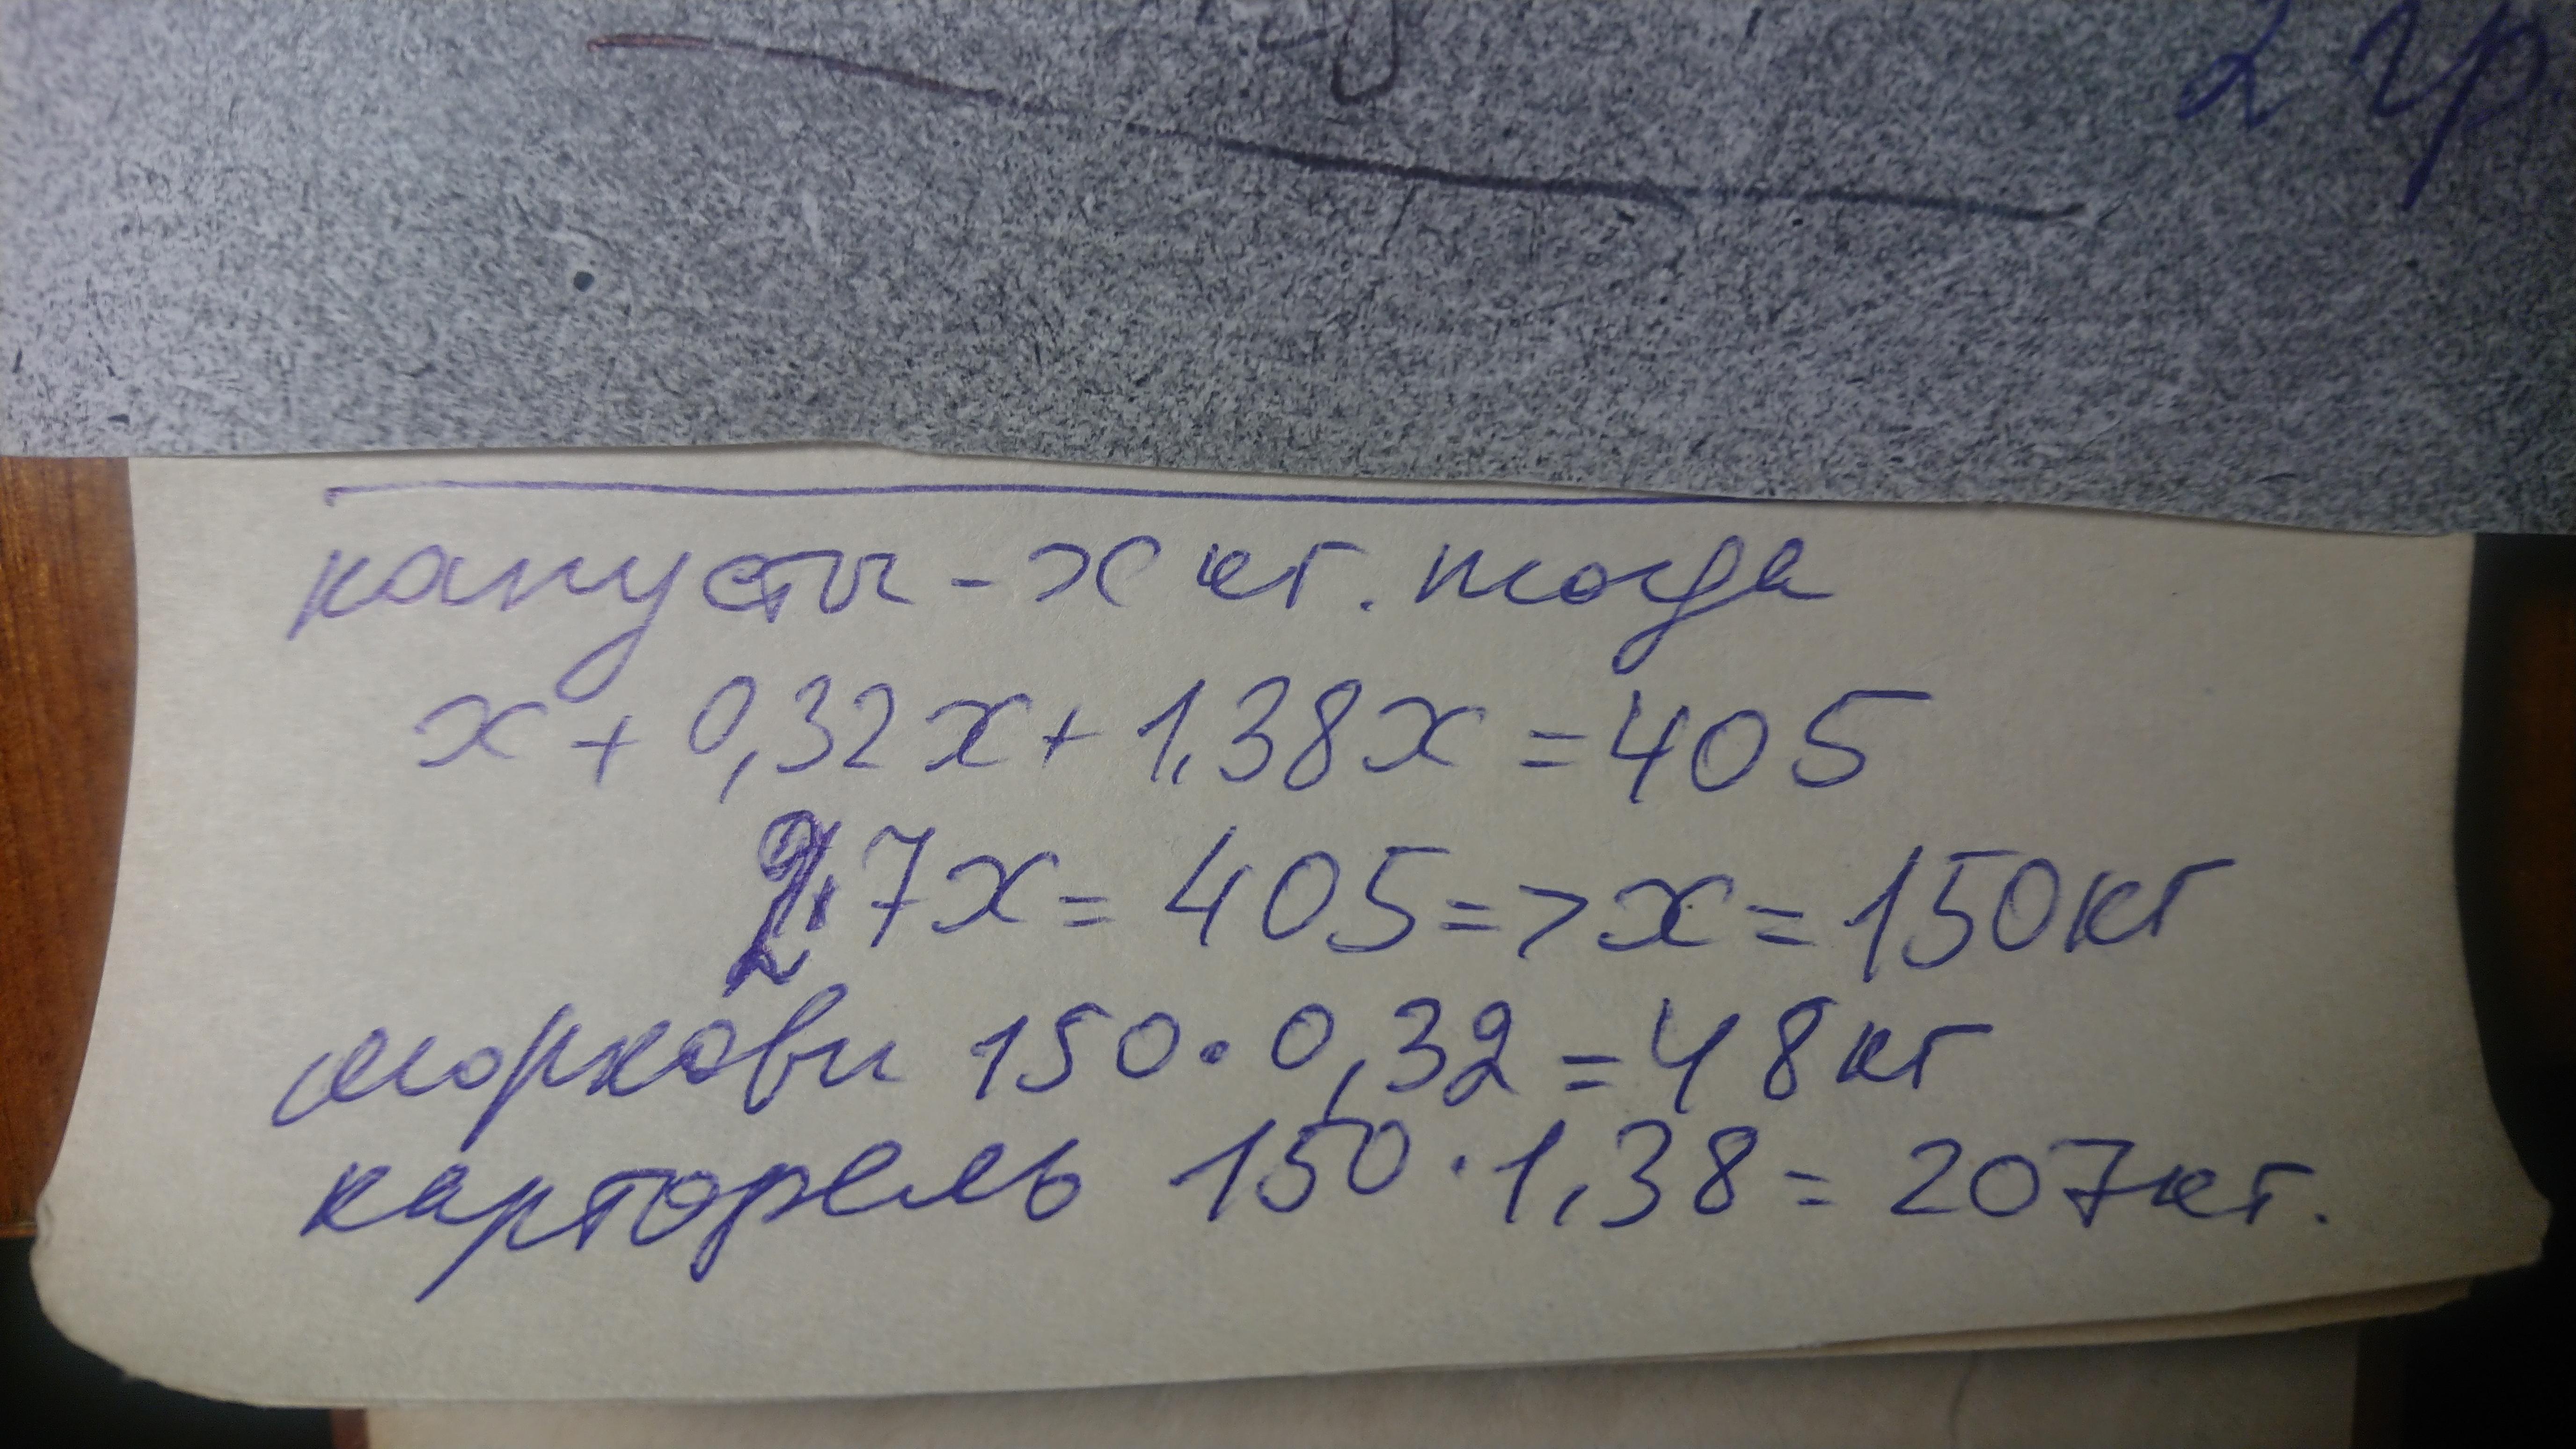 2 гр
капусты - х кг. тогда
х + 0,32х + 1,38х = 405
2,7х = 405 => х = 150кг
моркови 150 · 0,32 = 48кг
карторель 150 · 1,38 = 207кг.